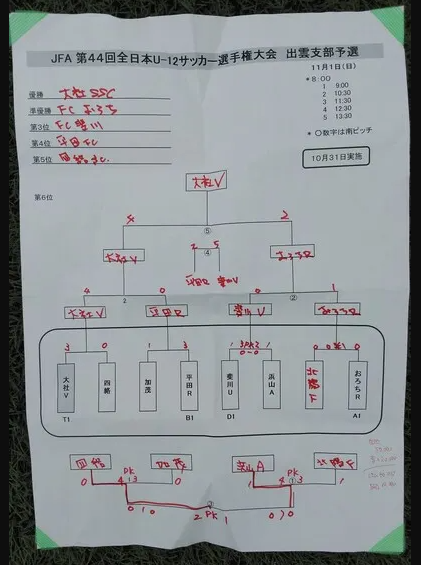 JFA 第44回全日本U-12サッカー選手権大会 出雲支部予選
11月1日(日)
*8:00
1 9:00
2 10:30
3 11:30
4 12:30
5 13:30
* ○数字は南ピッチ
10月31日実施
優勝 大社SSC
準優勝 FC おろち
第3位 FC 斐川
第4位 平田FC
第5位 四絡
第6位
大社V
4 2
⑤
2 5
④
大社V おろちR
平田R
4 0 0 1
2 ②
大社V 平田R おろちR
3 0 1 3
0-0
大社V 四絡 加茂 平田R 斐川U 浜山A 北陽F おろちR
T1 B1 D1 A1
四絡 加茂 浜山A 北陽F
PK PK
0 4 3 0 1 4 ① 3 1
0 0 2 PK 1 0 0